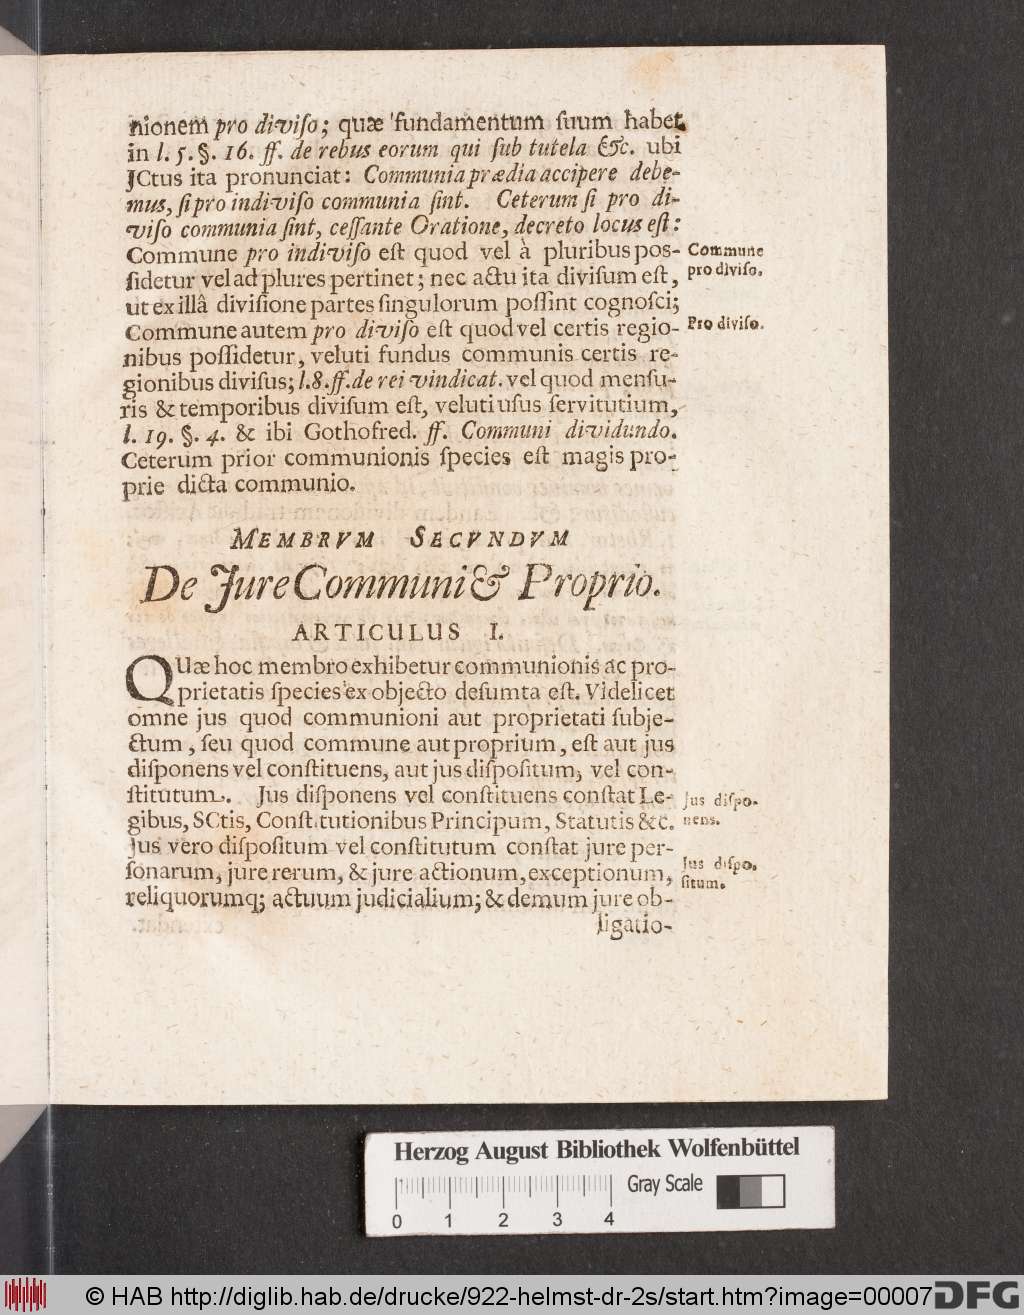 nionem pro diviſo; quæ fundamentum ſuum habet
in l. 5. §. 16. ff. de rebus eorum qui ſub tutela &c. ubi
JCtus ita pronunciat: Communia prædia accipere debe-
mus, ſi pro indiviſo communia ſint. Ceterum ſi pro di-
viſo communia ſint, ceſſante Oratione, decreto locus eſt:
Commune pro indiviſo eſt quod vel à pluribus poſ-
ſidetur vel ad plures pertinet; nec actu ita diviſum eſt,
ut ex illâ diviſione partes ſingulorum poſſint cognoſci;
Commune autem pro diviſo eſt quod vel certis regio-
nibus poſſidetur, veluti fundus communis certis re-
gionibus diviſus; l. 8. ff. de rei vindicat. vel quod menſu-
ris & temporibus diviſum eſt, veluti uſus ſervitutium,
l. 19. §. 4. & ibi Gothofred. ff. Communi dividundo.
Ceterum prior communionis ſpecies eſt magis pro-
prie dicta communio.
Commune
pro diviſo.
Pro diviſo.
MEMBRVM SECVNDVM
De Jure Communi & Proprio.
ARTICULUS I.
QUæ hoc membro exhibetur communionis ac pro-
prietatis ſpecies ex objecto deſumta eſt. Videlicet
omne jus quod communioni aut proprietati ſubje-
ctum, ſeu quod commune aut proprium, eſt aut jus
diſponens vel conſtituens, aut jus diſpoſitum, vel con-
ſtitutum. Jus diſponens vel conſtituens conſtat Le-
gibus, SCtis, Conſtitutionibus Principum, Statutis &c.
Jus vero diſpoſitum vel conſtitutum conſtat jure per-
ſonarum, jure rerum, & jure actionum, exceptionum,
reliquorumq; actuum judicialium; & demum jure ob-
ligatio-
Jus diſpo-
nens.
Jus diſpo.
ſitum.
Herzog August Bibliothek Wolfenbüttel
Gray Scale
0 1 2 3 4
© HAB http://diglib.hab.de/drucke/922-helmst-dr-2s/start.htm?image=00007
DFG